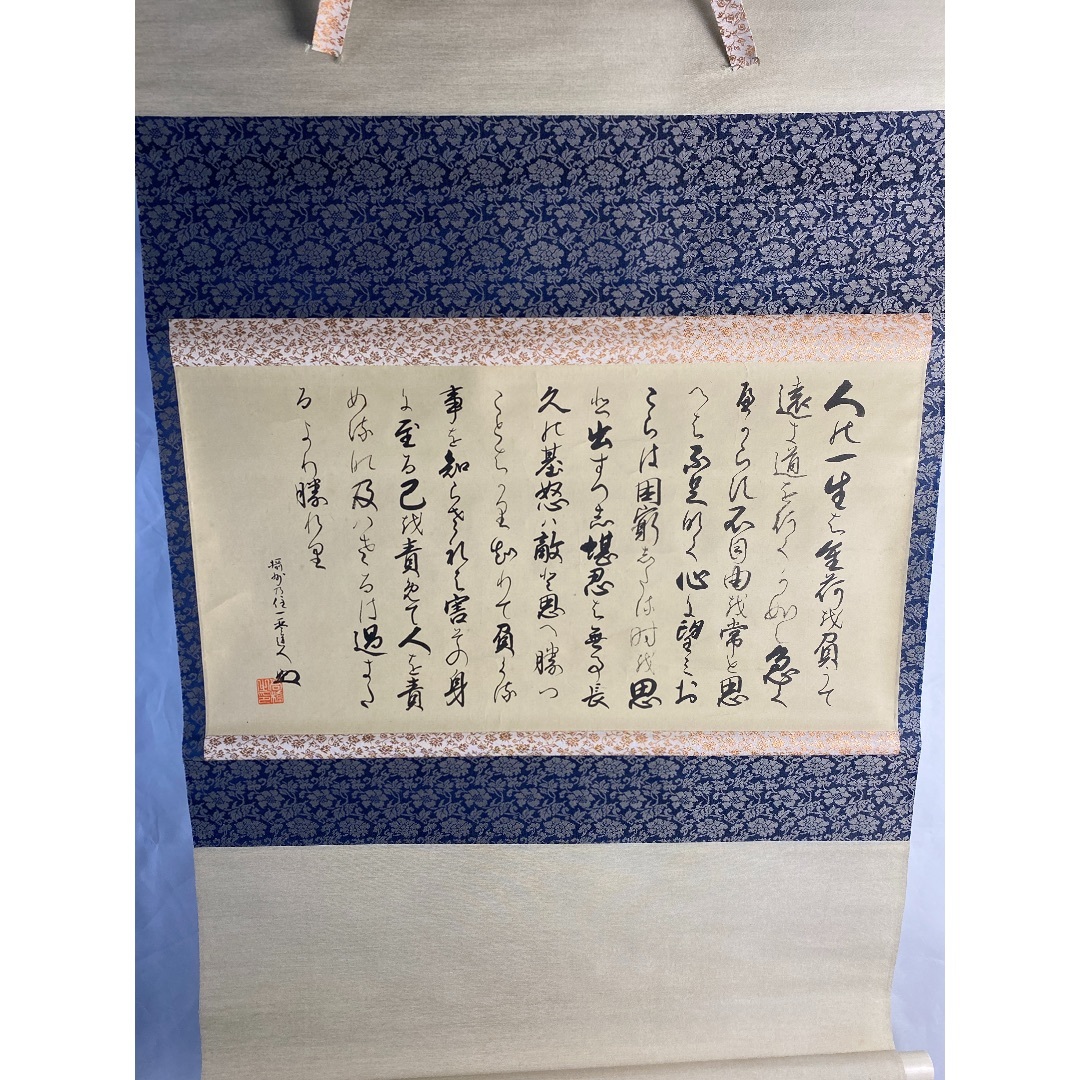 人の一生は重荷を負うて
遠き道を行くか如し急く
へからす不自由を常と思
へは不足なく心に望みお
こらは困窮したる時を思
ひ出すへし堪忍は無事長
久の基怒は敵と思へ勝つ
ことはかり知りて負くる
事を知らされは害其身
に至る己を責めて人を責
めるな及はさるは過きた
るより勝れり